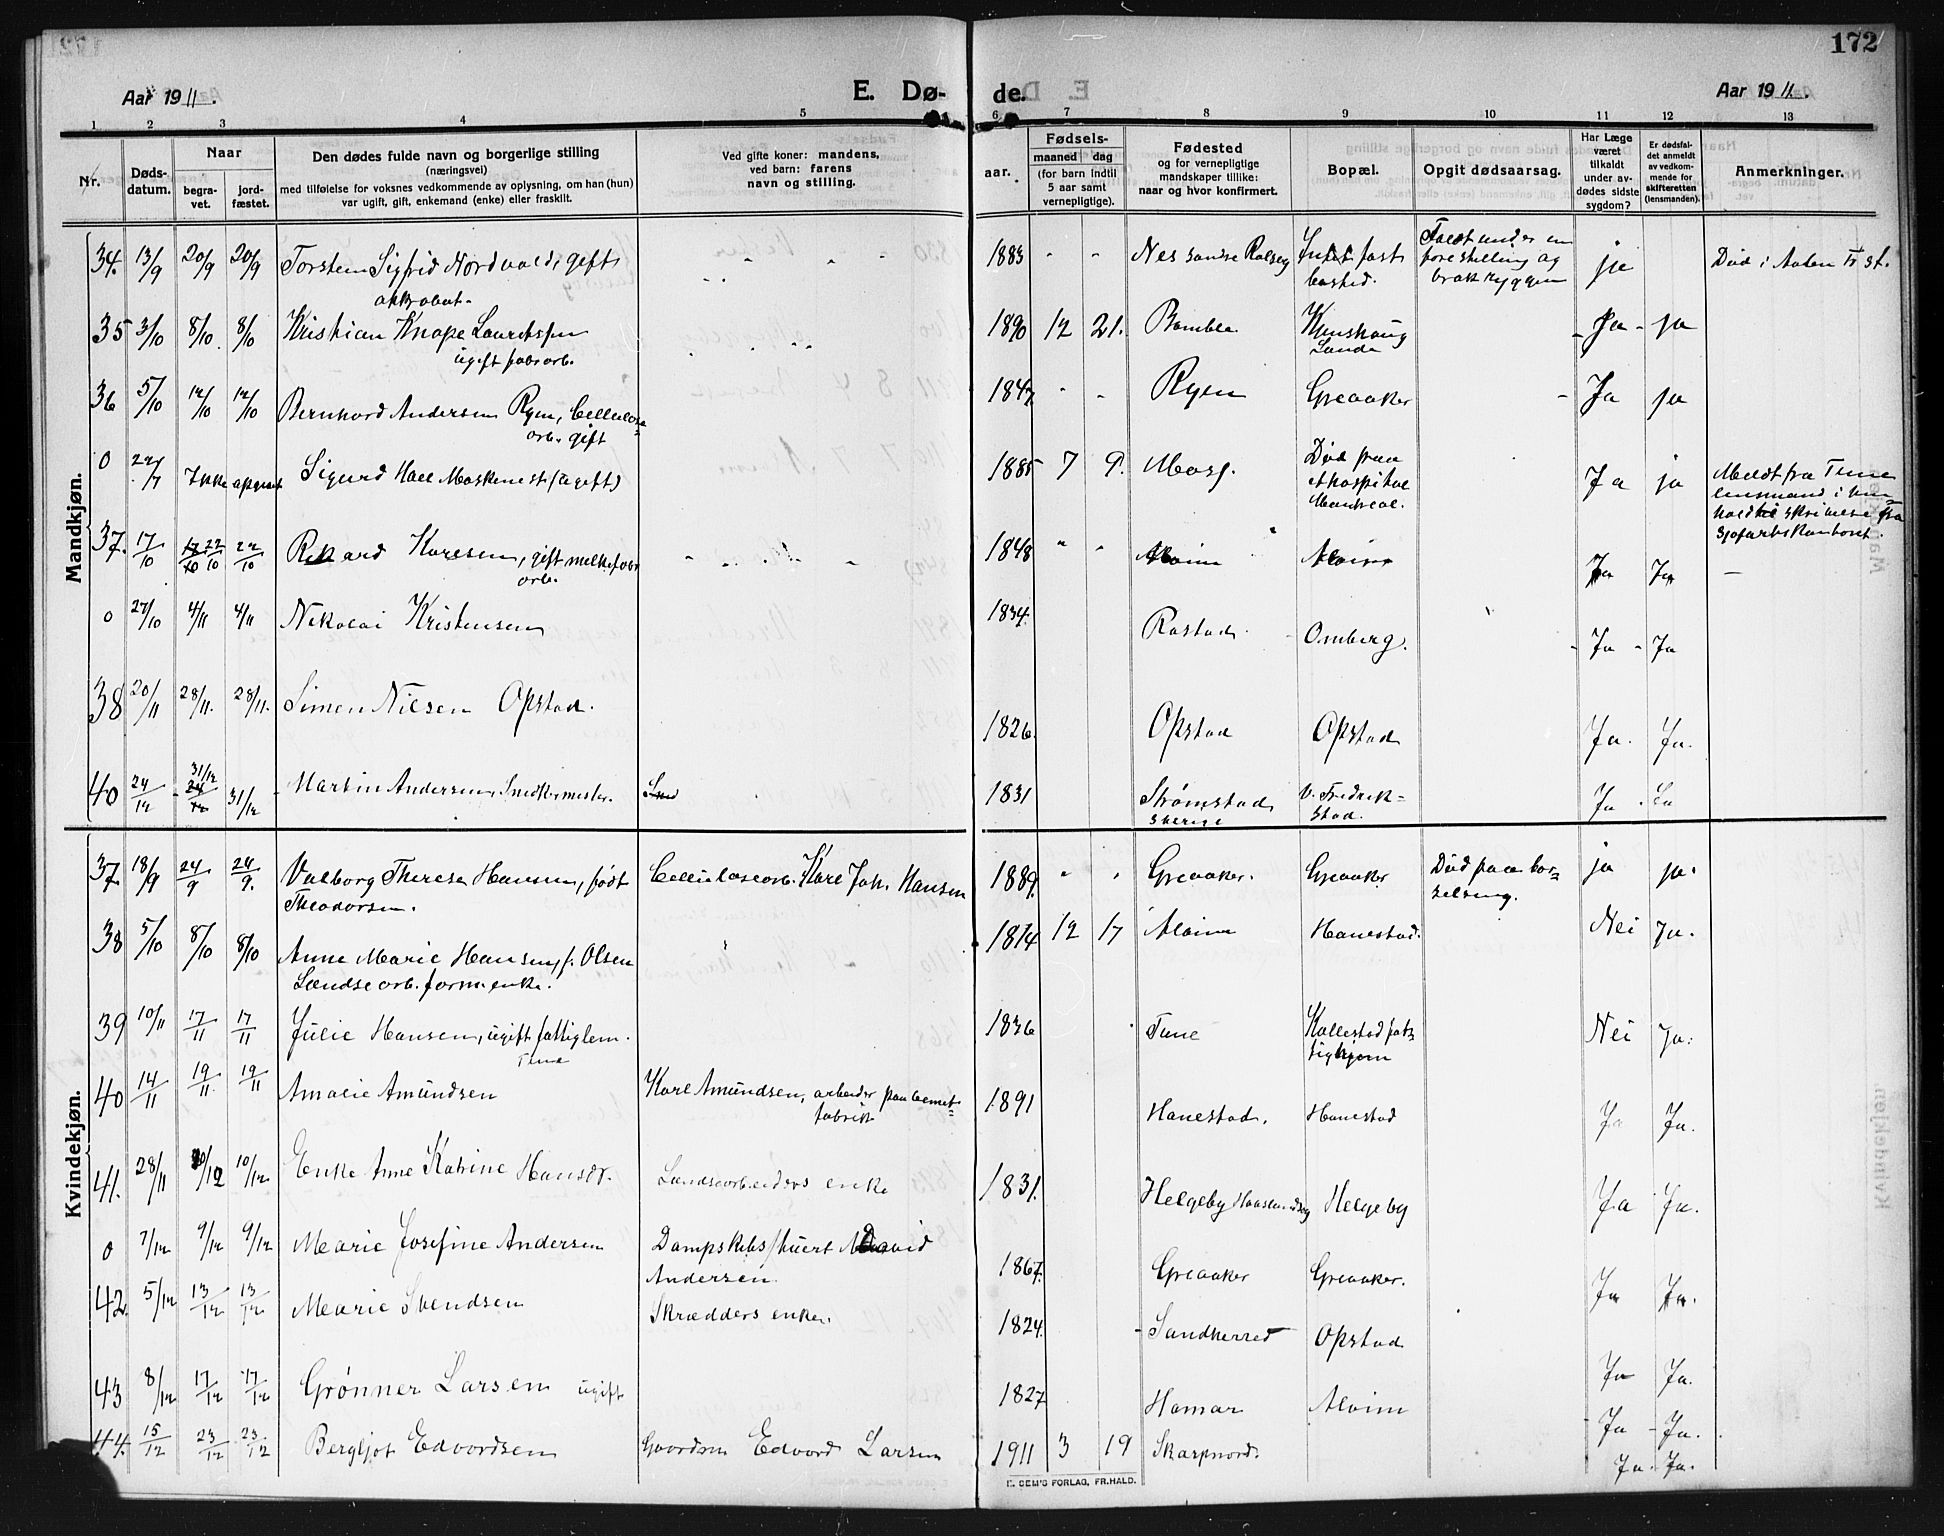 172
Aar 1911. E. Dø- de. Aar 1911.
1 2 3 4 5 6 7 8 9 10 11 12 13
Nr. Døds-datum. Naar begra-vet. jord-fæstet. Den dødes fulde navn og borgerlige stilling (næringsvei) med tilføielse for voksnes vedkommende av oplysning, om han (hun) var ugift, gift, enkemand (enke) eller fraskilt. Ved gifte koner: mandens, ved barn: farens navn og stilling. Fødsels- aar. maaned dag (for barn indtil 5 aar samt vernepligtige). Fødested og for vernepligtige mandskaper tillike: naar og hvor konfirmert. Bopæl. Opgit dødsaarsag. Har Læge været tilkaldt under av-dødes sidste sygdom? Er dødsfal-det anmeldt av vedkom-mende for skifteretten (lensmanden). Anmerkninger.
Mandkjøn.
34. 13/9 20/9 20/9 Torstein Sigfrid Nordvold, gift akrobat. 1883 " " Nes søndre fast bosted. under en forestilling og brak ryggen ja Død i
35 3/10 8/10. 8/10 Kristian Knape Lauritssen ugift fabrarb. 1890 12 21. Bamble Lande Ja ja
36 5/10 12/10 12/10 Bernhard Andersen Ryen, Cellulose arb. gift 1847 " " Ryen Greaaker Ja ja
0 22/7 Ikke opgivet Sigurd Hall Moskenest (ugift) 1885 7 9. Moss. Død paa hospital Montreal. Ja ja Meldt fra Tune lensmand i hen hold til skrivelse fra sjøfartskontoret.
37. 17/10 22/10 22/10 Rikard Karlsen, gift melkefabr arb. 1848 " " Alvim Alvim Ja Ja —
0 27/10 4/11 4/11 Nikolai Kristensen 1834. Rostad Omberg. Ja Ja
38 20/11 28/11. 28/11. Simen Nilsen Opstad. 1826. Opstad Opstad Ja. Ja.
40 24/12 31/12 31/12 Martin Andersen, Snedkermester. 1831 Strømstad Sverige V. Fredrikstad. Ja Ja
Kvindekjøn.
37 18/9 24/9 24/9. Valborg Therese Hansen, født Theodorsen. Cellulosearb. Karl Joh. Hansen 1889. " " Greaaker. Greaaker Død paa barselseng. ja ja.
38 5/10 8/10 8/10 Anne Marie Hansen, f. Olsen Lændsearb. form. enke. 1814 12 17 Alvim Hanestad. Nei Ja.
39 10/11 17/11 17/11 Julie Hansen, ugift fattiglem. Tune 1836 Tune Kallestad fattighjem Nei Ja.
40 14/11 19/11. 19/11 Amalie Amundsen Karl Amundsen, arbeider paa cementfabrik 1891 Hanestad. Hanestad Ja Ja.
41. 28/11 10/12 10/12 Enke Anne Katrine Hansdr. Lændsearbeiders enke 1831. Helgeby Helgeby Ja Ja.
0 7/12 9/12 9/12 Marie Josefine Andersen Dampskibsfyrbøter David Andersen. 1867. Greaaker Greaaker. Ja Ja.
42. 5/12 13/12 13/12 Marie Svendsen Skrædders enke. 1824. Sandherred Opstad Ja Ja.
43 8/12 17/12 17/12 Grønner Larsen ugift 1827 Hamar Alvim Ja Ja.
44. 15/12 23/12 23/12 Bergljot Edvardsen Edvard Larsen 1911 3 19 Skarpnord. Ja. Ja.
E. SEM'S FORLAG, FR.HALD.